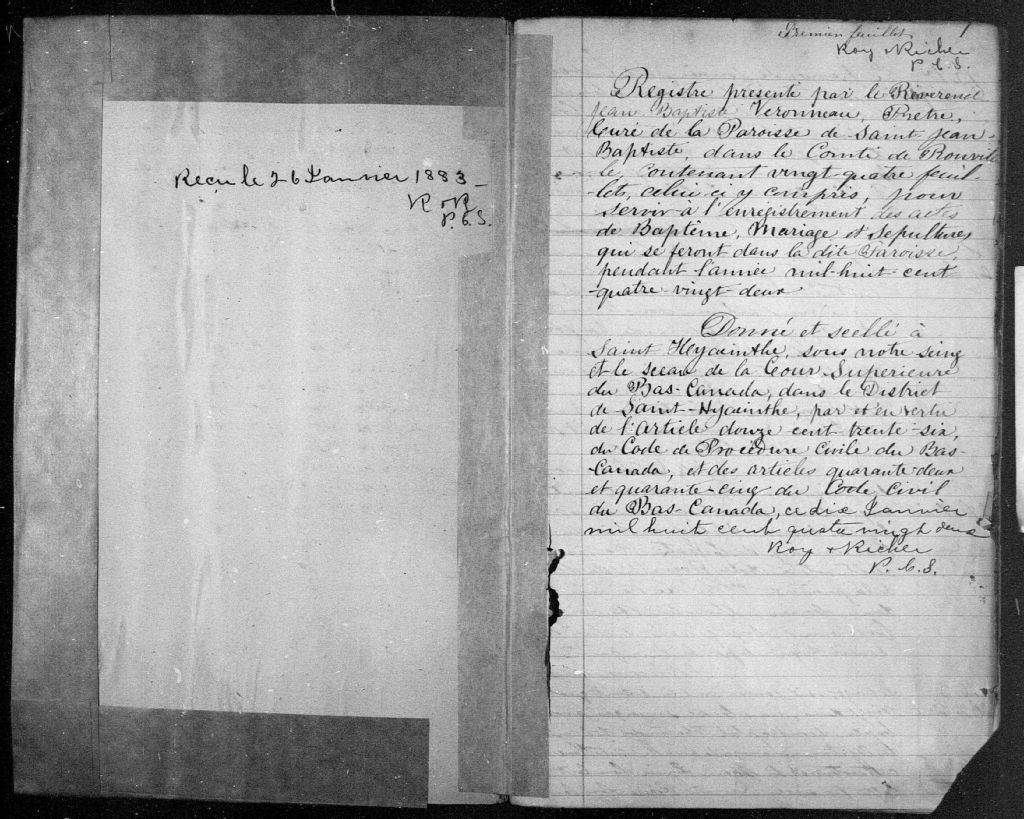 Reçu le 26 Janvier 1883_
R & R
P.C.S.
Premier feuillet
1
Roy & Richer
P.C.S.
Registre présenté par le Révérend
Jean Baptiste Véronneau, Prêtre,
Curé de la Paroisse de Saint Jean-
Baptiste, dans le Comté de Rouvil-
le, contenant vingt-quatre feuil-
lets, celui-ci y compris, pour
servir à l'enrégistrement des actes
de Baptême, Mariage et Sépultures
qui se feront dans la dite Paroisse,
pendant l'année mil-huit-cent
quatre-vingt-deux
Donné et scellé à
Saint Hyacinthe, sous notre seing
et le sceau de la Cour Supérieure
du Bas-Canada, dans le District
de Saint-Hyacinthe, par et en vertu
de l'article douze cent trente-six,
du Code de Procédure Civile du Bas-
Canada, et des articles quarante-deux
et quarante-cinq du Code Civil
du Bas-Canada, ce dix Janvier
mil huit cent quatre vingt deux
Roy & Richer
P.C.S.